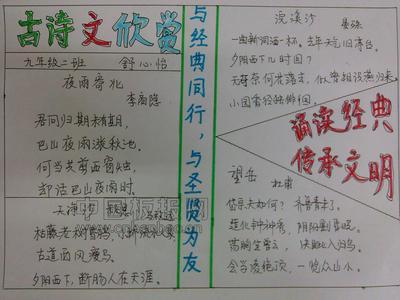 古诗文欣赏
九年级二班 舒心怡
夜雨寄北
李商隐
君问归期未有期,
巴山夜雨涨秋池
何当共剪西窗烛
却话巴山夜雨时
枯藤老树昏鸦,小桥流水人家
古道西风瘦马
夕阳西下,断肠人在天涯.
与经典同行,与圣贤为友
浣溪沙 晏殊
一曲新词酒一杯。去年天气旧亭台。
夕阳西下几时回?
无可奈何花落去,似曾相识燕归来。
小园香径独徘徊。
诵读经典
传承文明
望岳 杜甫
岱宗夫如何?齐鲁青未了。
造化钟神秀,阴阳割昏晓。
荡胸生曾云,决眦入归鸟。
会当凌绝顶,一览众山小。
中国板报网